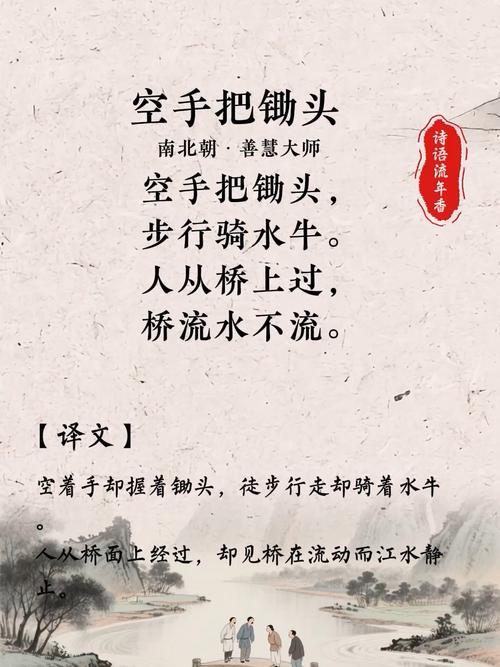 空手把锄头
南北朝·善慧大师
空手把锄头，
步行骑水牛。
人从桥上过，
桥流水不流。
诗语流年香
【译文】
空着手却握着锄头，徒步行走却骑着水牛
。
人从桥面上经过，却见桥在流动而江水静
止。